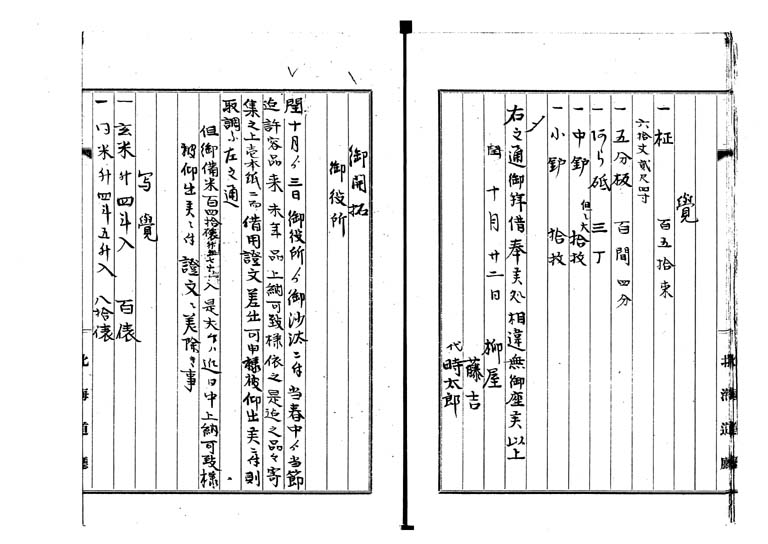 覺
一 柾 百五拾束
六拾丈貳尺四寸
一 五分板 百間四分
一 あら砥 三丁
一 中釛 但し大 拾枚
一 小釛 拾枚
右之通御拝借奉美処相違無御座美以上
閏十月廿二日
柳屋
藤吉
代 時太郎
北海道廳
御開拓
御役所
閏十月ゟ三日御役所ゟ御沙汰ニ付当春中ゟ当節
迄許容品来未年品上納可致様依之是迄之品々寄
集之上壱本紙ニ而借用證文差出可申様被仰出美ニ付則
取調ら左之通
但御備米百四拾俵
入是大
近日中上納可致様
被仰出美ニ付證文ニ美除き事
写覺
一 玄米 升四斗入 百俵
一 同米 升四斗五升入 八拾俵
北海道廳